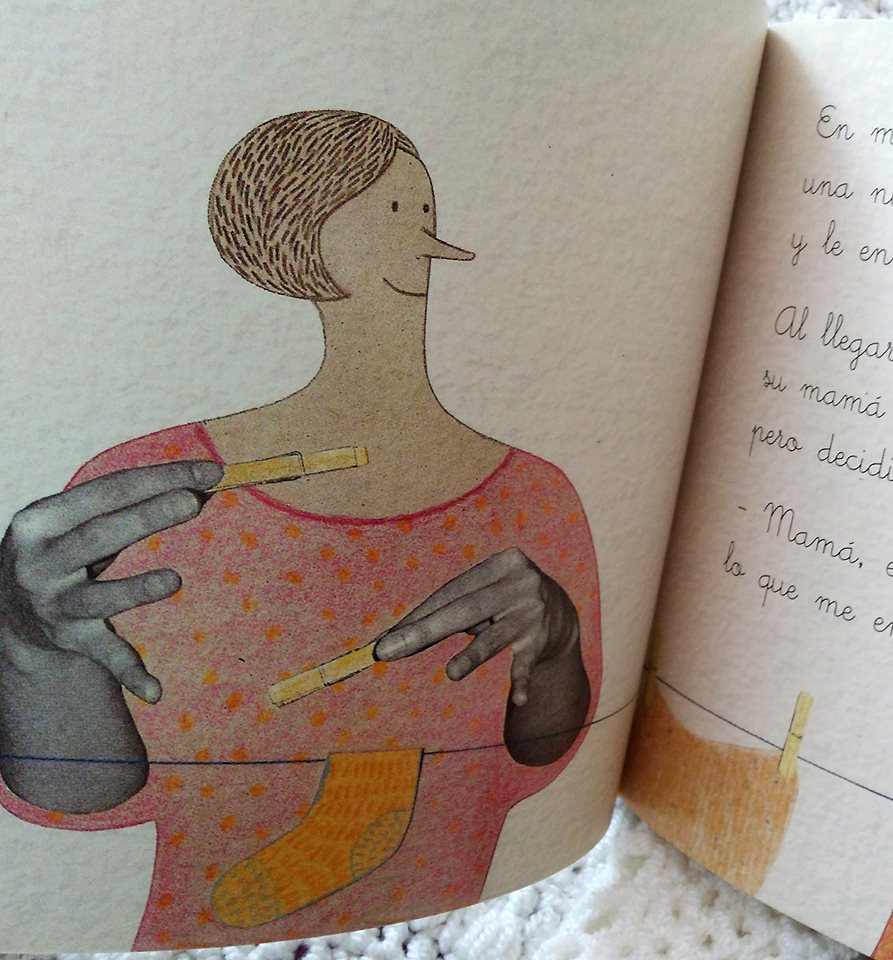 En m
una n
y le en
Al llegar
su mamá
pero decidi
- Mamá, e
lo que me en